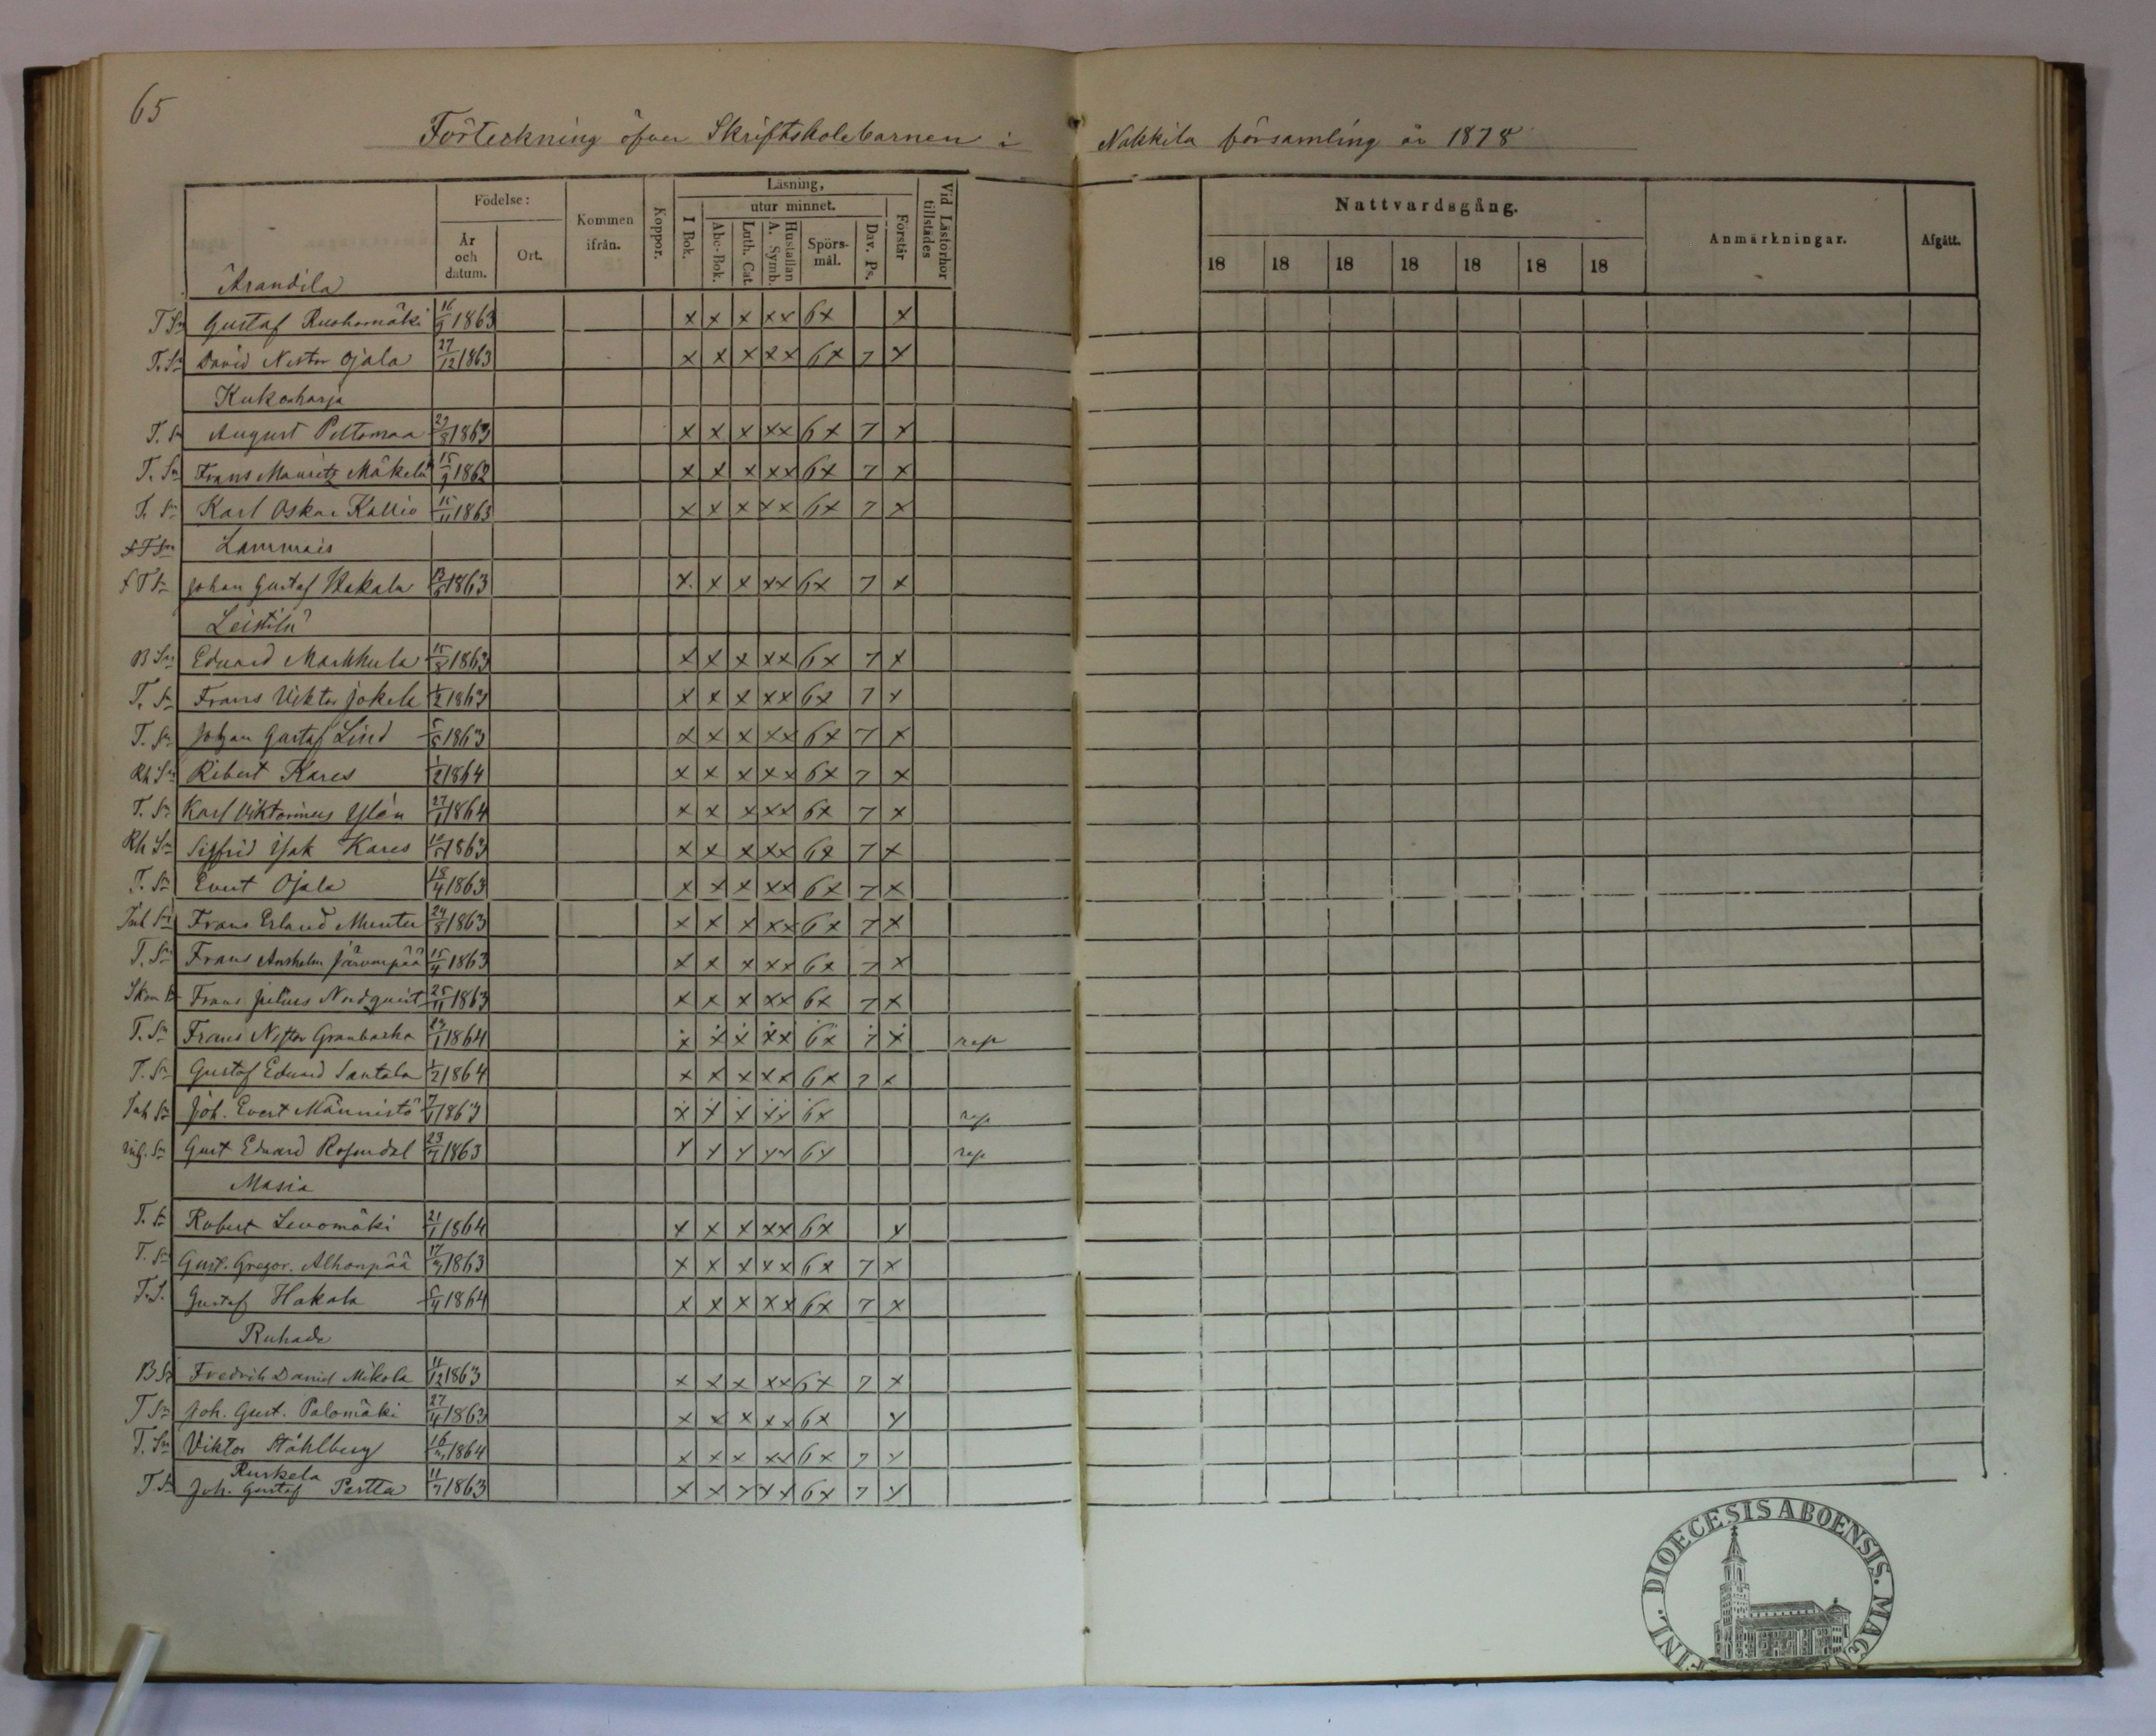 65
Förteckning öfver Skriftskolebarnen i Nakkila församling år 1878
Födelse:
År och datum.
Ort.
Kommen ifrån.
Koppor.
Läsning,
utur minnet.
I Bok.
Abc-Bok.
Luth. Cat.
Hustaflan A. Symb.
Spörs-mål.
Dav. Ps.
Förstår
Vid Läsförhör tillstädes
Nattvardsgång.
18 18 18 18 18 18 18
Anmärkningar.
Afgått.
Arandila
T Sn Gustaf Ruohomäki 1863 x x x xx 6x x
T. Sn David Nestor Ojala 27/12 1863 x x x xx 6x 7 x
Kukonharja
T. Sn August Peltomaa 29/8 1863 x x x xx 6x 7 x
T. Sn Frans Mauritz Mäkelä 15/9 1862 x x x xx 6x 7 x
T. Sn Karl Oskar Kallio 15/11 1863 x x x xx 6x 7 x
Lammais
f T Sn Johan Gustaf Hakala 1863 x x x xx 6x 7 x
Leistilä
B Sn Eduard Markkula 15/8 1863 x x x xx 6x 7 x
T. Sn Frans Viktor Jokela 1863 x x x xx 6x 7 x
T. Sn Johan Gustaf Lind 1863 x x x xx 6x 7 x
Rh Sn Robert Kares 1/2 1864 x x x xx 6x 7 x
T. Sn Karl Viktorinus Ylén 27/1 1864 x x x xx 6x 7 x
Rh Sn Sigfrid Isak Kares 1863 x x x xx 6x 7 x
T. Sn Evert Ojala 18/4 1863 x x x xx 6x 7 x
Inh Sn Frans Erland Munter 24/8 1863 x x x xx 6x 7 x
T. Sn Frans Anshelm Järvenpää 15/4 1863 x x x xx 6x 7 x
Frans Julius Nordqvist 25/11 1863 x x x xx 6x 7 x
T. Sn Frans Nestor Granbacka 1864 x x x xx 6x 7 x rep
T. Sn Gustaf Eduard Santala 1/2 1864 x x x xx 6x 7 x
Inh Sn Joh. Evert Männistö 1863 x x x xx 6x rep
Inh. Sn Gust Eduard Rosendal 23/7 1863 x x x xx 6x rep
Masia
T. Sn Robert Levomäki 21/1 1864 x x x xx 6x x
T. Sn Gust. Gregor. Alhonpää 1863 x x x xx 6x 7 x
T. S. Gustaf Hakala 1864 x x x xx 6x 7 x
Ruhade
B Sn Fredrik Daniel Mikola 11/12 1863 x x x xx 6x 7 x
T Sn Joh. Gust. Palomäki 27/4 1863 x x x xx 6x x
T. Sn Viktor Ståhlberg 1864 x x x xx 6x 7 x
Ruskela
T Sn Joh. Gustaf Pertta 1863 x x x xx 6x 7 x
FINL. DIOECESIS ABOENSIS. MAG